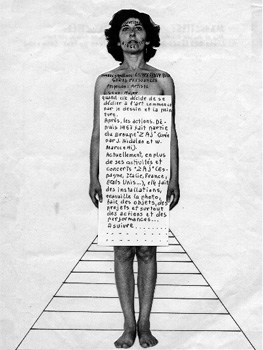 quand elle décide de se
dédier à l'art commence
par le dessin et la pein
ture.
Après, les actions. De-
puis 1967 fait partie
du Groupe "ZAJ" (créé
par J. Hidalgo et W.
Marchetti).
Actuellement, en plus
de ses activités et
concerts "ZAJ" (Es-
pagne, Italie, France,
Etats Unis...), elle fait
des installations,
travaille la photo,
fait des objets, des
projets et surtout
des actions et des
performances...
A suivre.........